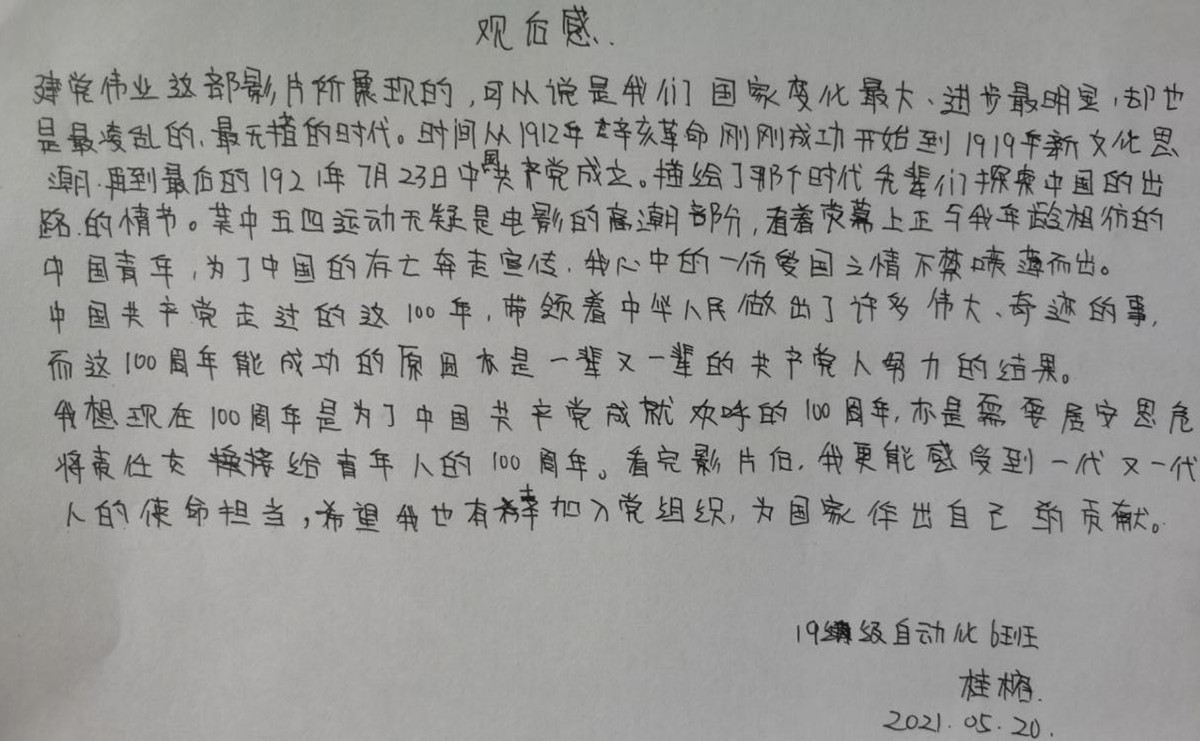 观后感.
建党伟业这部影片所展现的，可以说是我们国家变化最大、进步最明显，却也
是最凌乱的、最无措的时代。时间从1912年辛亥革命刚刚成功开始到1919年新文化思
潮.再到最后的1921年7月23日中国共产党成立。描绘了那个时代先辈们探索中国的出
路.的情节。其中五四运动无疑是电影的高潮部分，看着荧幕上正与我年龄相彷的
中国青年，为了中国的存亡奔走宣传，我心中的一份爱国之情不禁喷薄而出。
中国共产党走过的这100年，带领着中华人民做出了许多伟大、奇迹的事，
而这100周年能成功的原因亦是一辈又一辈的共产党人努力的结果。
我想现在100周年是为了中国共产党成就欢呼的100周年，亦是需要居安思危
将责任交接给青年人的100周年。看完影片后，我更能感受到一代又一代
人的使命担当，希望我也有幸加入党组织，为国家作出自己的贡献。
19级自动化6班
桂榕.
2021.05.20.